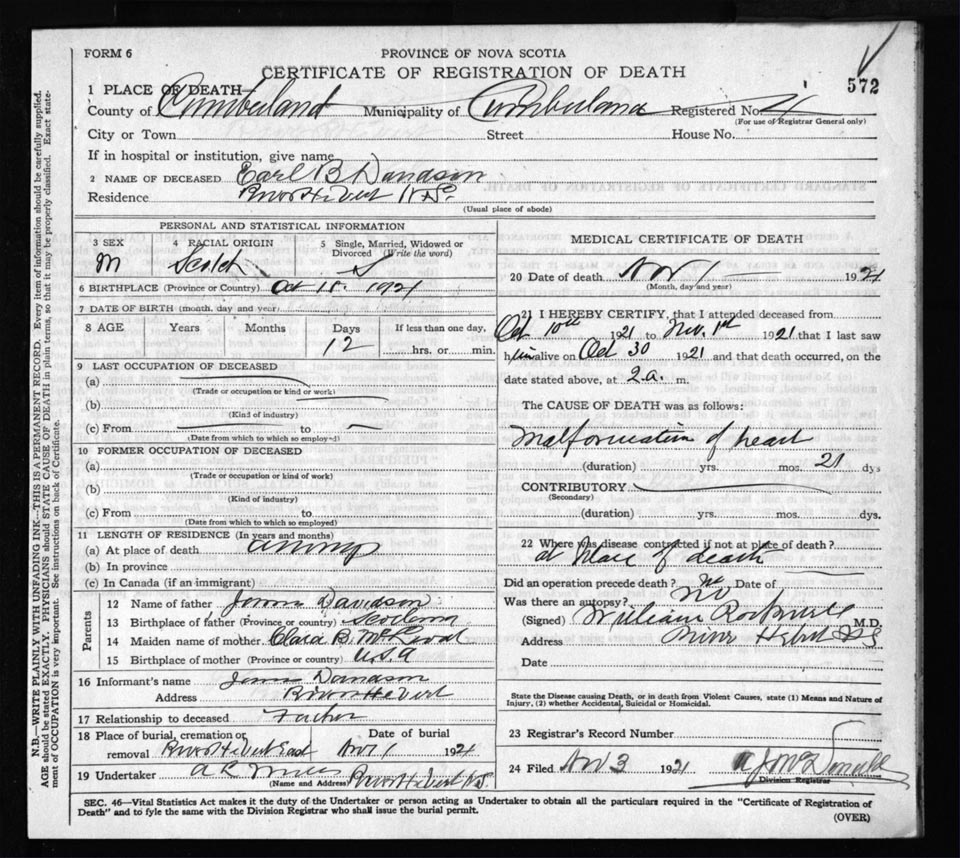 FORM 6
PROVINCE OF NOVA SCOTIA
CERTIFICATE OF REGISTRATION OF DEATH
572
1 PLACE OF DEATH—
County of Cumberland Municipality of Cumberland Registered No.
(For use of Registrar General only)
City or Town Street House No.
If in hospital or institution, give name
2 NAME OF DECEASED Earl B Davidson
Residence River Hebert N.S.
(Usual place of abode)
PERSONAL AND STATISTICAL INFORMATION
3 SEX 4 RACIAL ORIGIN 5 Single, Married, Widowed or Divorced (Write the word)
M Scotch S
6 BIRTHPLACE (Province or Country) Oct 18. 1921
7 DATE OF BIRTH (month, day and year)
8 AGE Years Months Days If less than one day,
12 hrs. or min.
9 LAST OCCUPATION OF DECEASED
(a)
(Trade or occupation or kind or work)
(b)
(Kind of industry)
(c) From to
(Date from which to which so employed)
10 FORMER OCCUPATION OF DECEASED
(a)
(Trade or occupation or kind of work)
(b)
(Kind of industry)
(c) From to
(Date from which to which so employed)
11 LENGTH OF RESIDENCE (In years and months)
(a) At place of death always
(b) In province
(c) In Canada (if an immigrant)
Parents
12 Name of father Davidson
13 Birthplace of father (Province or country)
14 Maiden name of mother Clara B.
15 Birthplace of mother (Province or country) U.S.A
16 Informant's name Davidson
Address River Hebert
17 Relationship to deceased Father
18 Place of burial, cremation or removal River Hebert East Date of burial Nov 1 1921
19 Undertaker A R River Hebert N.S.
(Name and Address)
MEDICAL CERTIFICATE OF DEATH
20 Date of death Nov 1 1921
(Month, day and year)
21 I HEREBY CERTIFY, that I attended deceased from
Oct 10th 1921 to Nov. 1st 1921 that I last saw
him alive on Oct 30 1921 and that death occurred, on the
date stated above, at 2 a. m.
The CAUSE OF DEATH was as follows:
Malformation of heart
(duration) yrs. mos. 21 dys
CONTRIBUTORY
(Secondary)
(duration) yrs. mos. dys.
22 Where was disease contracted if not at place of death?
at place of death
Did an operation precede death? No Date of
Was there an autopsy? No
(Signed) William Rockwell M.D.
Address River Hebert N.S.
Date
State the Disease causing Death, or in death from Violent Causes, state (1) Means and Nature of
Injury, (2) whether Accidental, Suicidal or Homicidal.
23 Registrar's Record Number
24 Filed Nov 3 1921 McDonald
Division Registrar
SEC. 46—Vital Statistics Act makes it the duty of the Undertaker or person acting as Undertaker to obtain all the particulars required in the "Certificate of Registration of
Death" and to fyle the same with the Division Registrar who shall issue the burial permit.
(OVER)
N.B.—WRITE PLAINLY WITH UNFADING INK—THIS IS A PERMANENT RECORD. Every item of information should be carefully supplied.
AGE should be stated EXACTLY. PHYSICIANS should STATE CAUSE OF DEATH in plain terms, so that it may be properly classified. Exact state-
ment of OCCUPATION is very important. See instructions on back of Certificate.